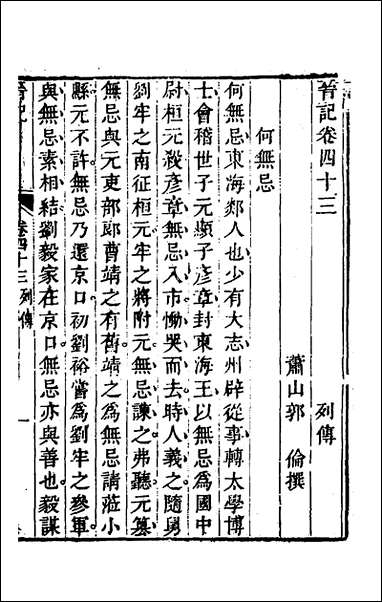 晉記卷四十三
列傳
蕭山郭　倫撰
何無忌
何無忌東海郯人也少有大志州辟從事轉太學博
士會稽世子元顯子彥章封東海王以無忌爲國中
尉桓元殺彥章無忌入市慟哭而去時人義之隨舅
劉牢之南征桓元牢之將附元無忌諫之弗聽元篡
無忌與元吏部郎曹靖之有舊靖之爲無忌請莅小
縣元不許無忌乃還京口初劉裕嘗爲劉牢之參軍
與無忌素相結劉毅家在京口無忌亦與善也毅謀
卷四十三 列傳
一